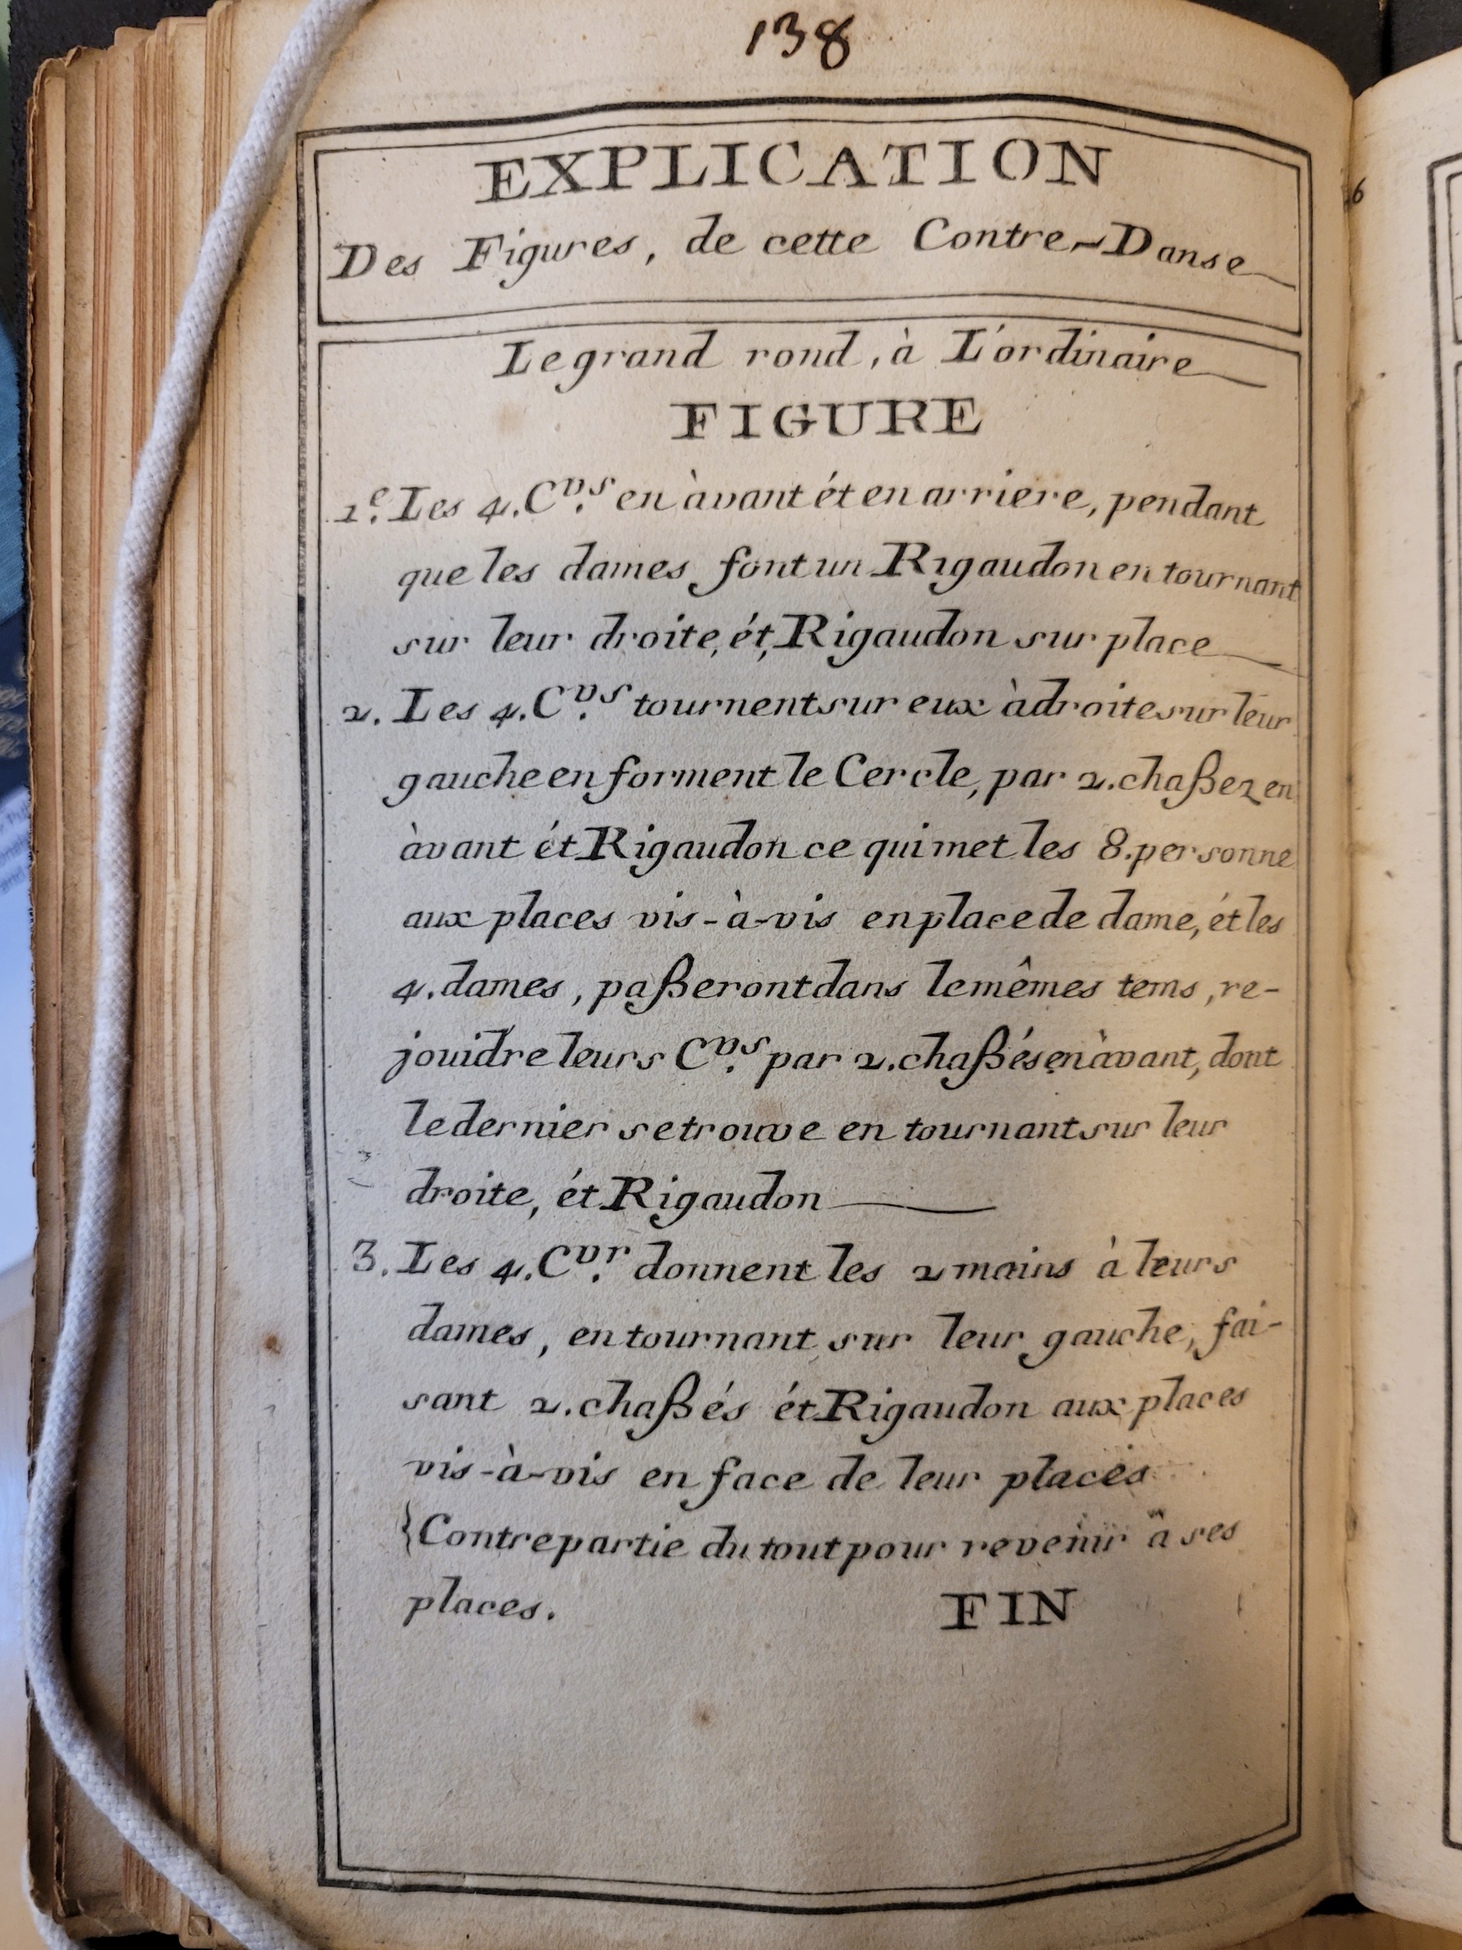 138
EXPLICATION
Des Figures, de cette Contre-Danse
Le grand rond, à L'ordinaire
FIGURE
1.e Les 4. C.vs en àvant ét en arriere, pendant
que les dames font un Rigaudon en tournant
sur leur droite, ét, Rigaudon sur place
2. Les 4. C.vs tournent sur eux à droite sur leur
gauche en forment le Cercle, par 2. chaßez en
àvant ét Rigaudon ce qui met les 8. personne
aux places vis-à-vis en place de dame, ét les
4. dames, paßeront dans le mêmes tems, re-
jouidre leurs C.vs par 2. chaßés en àvant, dont
le dernier se trouve en tournant sur leur
droite, ét Rigaudon
3. Les 4. C.vr donnent les 2 mains à leurs
dames, en tournant sur leur gauche, fai-
sant 2. chaßés ét Rigaudon aux places
vis-à-vis en face de leur places
{Contrepartie du tout pour revenir à ses
places. FIN
6